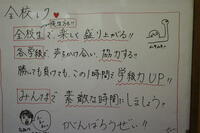 全校レク!!
全校生で、楽しく盛り上がる!!
各学級で、声をかけ合い、協力する!!
勝っても負けても、この1時間で学級力UP!!
みんなで素敵な時間にしましょう。
がんばろうぜい!!